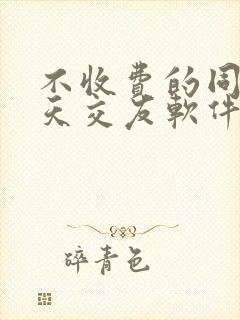 不收費的同
天交友軟件
碎青色